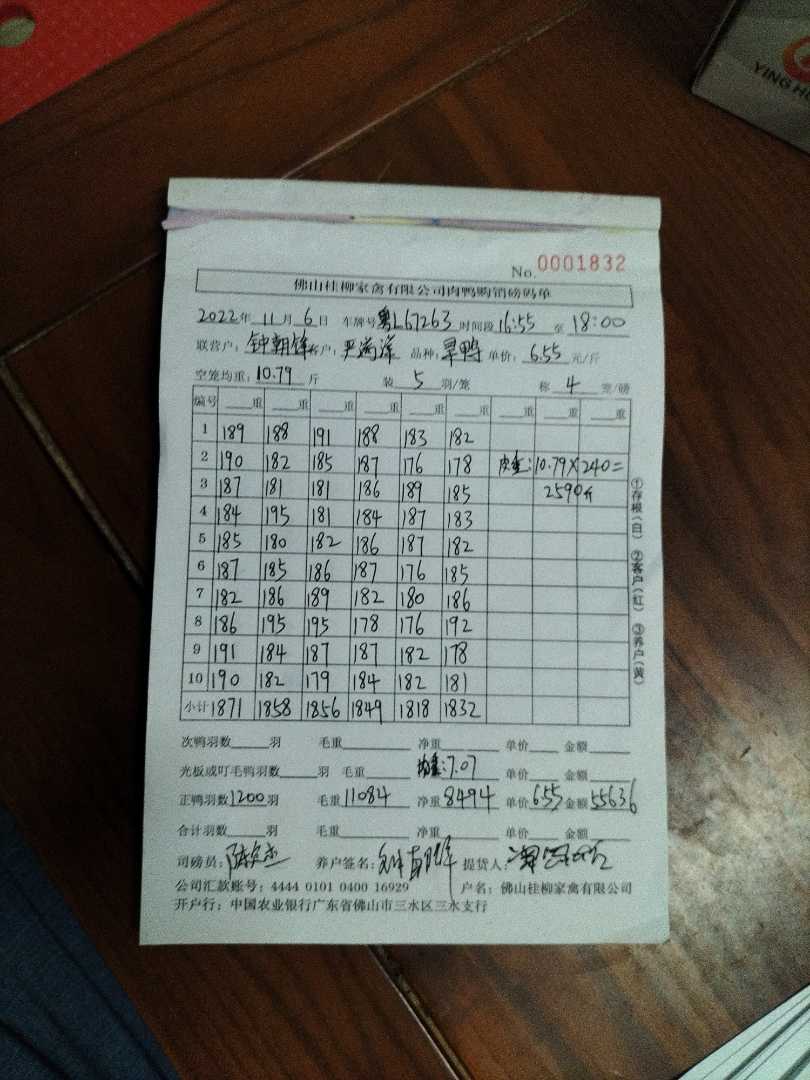 YING H
No. 0001832
佛山桂柳家禽有限公司肉鸭购销磅码单
2022年 11月 6日 车牌号 粤L67263 时间段 16:55 至 18:00
联营户: 钟朝锋 客户: 品种: 单价: 6.55 元/斤
空笼均重: 10.79 斤 装 5 羽/笼 称 4 笼/磅
编号 重 重 重 重 重 重 重 重 重
1 189 188 191 188 183 182
2 190 182 185 187 176 178 皮重: 10.79×240=
3 187 181 181 186 189 185 2590斤
4 184 195 181 184 187 183
5 185 180 182 186 187 182
6 187 185 186 187 176 185
7 182 186 189 182 180 186
8 186 195 195 178 176 192
9 191 184 187 187 182 178
10 190 182 179 184 182 181
小计 1871 1858 1856 1849 1818 1832
①存根(白) ②客户(红) ③养户(黄)
次鸭羽数 羽 毛重 净重 单价 金额
光板或叮毛鸭羽数 羽 毛重 均重:7.07 单价 金额
正鸭羽数 1200 羽 毛重 11084 净重 8494 单价 6.55 金额 55636
合计羽数 羽 毛重 净重 单价 金额
司磅员: 养户签名: 钟朝锋 提货人:
公司汇款账号: 4444 0101 0400 16929 户名: 佛山桂柳家禽有限公司
开户行: 中国农业银行广东省佛山市三水区三水支行